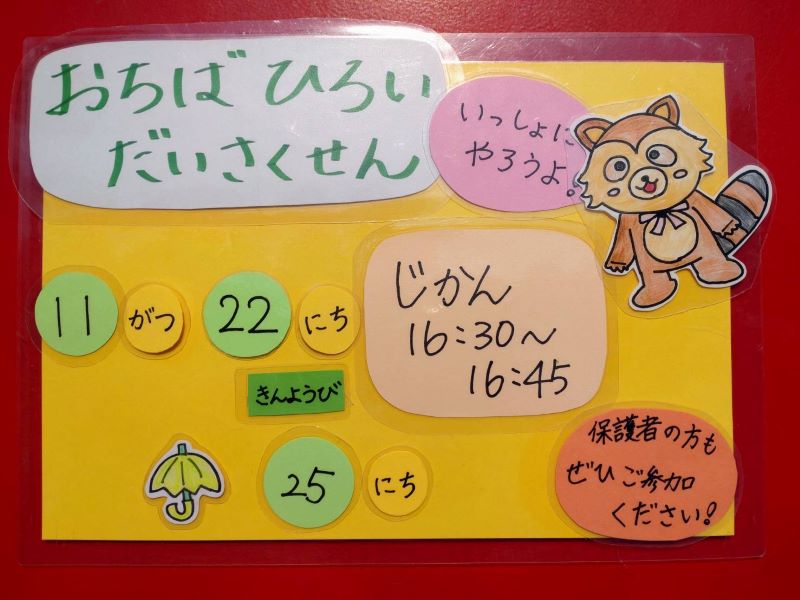 おちば ひろい
だいさくせん
いっしょに
やろうよ!
11 がつ 22 にち
きんようび
じかん
16:30～
16:45
25 にち
保護者の方も
ぜひご参加
ください!